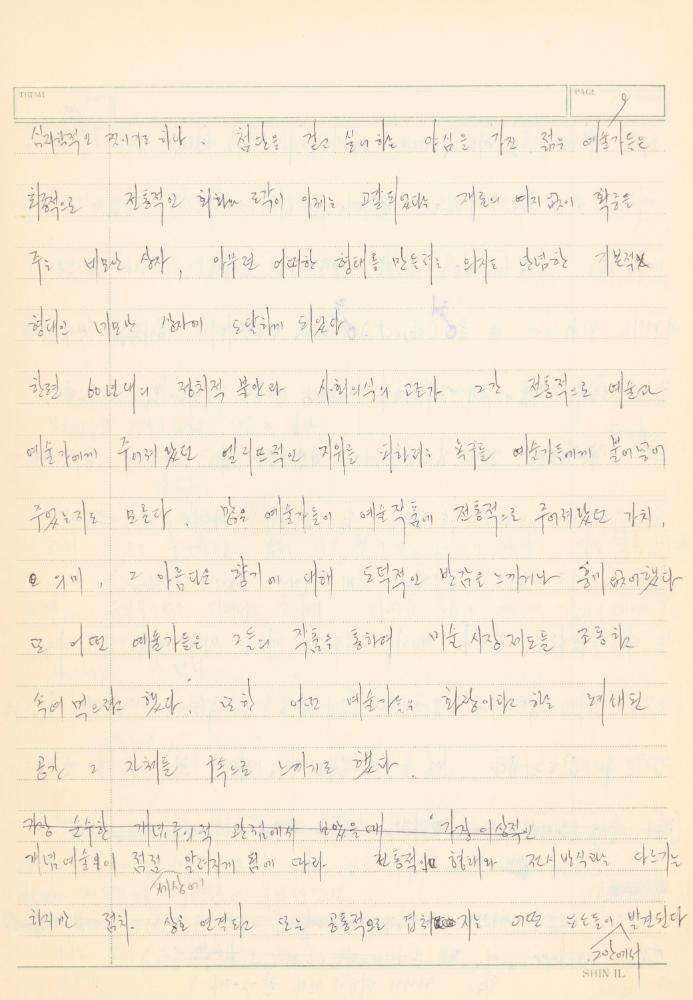 THEME
PAGE 9
심과학적인 것이기도 하다. 첨단을 걷고 싶어하는 야심을 가진 젊은 예술가들은
최종적으로 전통적인 회화와 조각이 이제는 고갈되었다는 재론의 여지없이 확증을
주는 네모난 상자, 아무런 어떠한 형태를 만들려는 의지도 단념한 기본적
형태인 네모난 상자에 도달하게 되었다
한편 60년대의 정치적 불안과 사회의식의 고조가 그간 전통적으로 예술과
예술가에게 주어져 왔던 엘리트적인 지위를 피하려는 욕구를 예술가들에게 불어넣어
주었는지도 모른다. 많은 예술가들이 예술작품에 전통적으로 주어져 왔던 가치,
의미, 그 아름다운 향기에 대해 도덕적인 반감을 느끼거나 흥미없어했다
또 어떤 예술가들은 그들의 작품을 통하여 미술시장제도를 조롱하고
속여먹으려고 했다. 또한 어떤 예술가들은 화랑이라고 하는 폐쇄된
공간 그 자체를 구속으로 느끼기도 했다.
가장 순수한 개념주의적 관점에서 보았을때 가장 이상적인
개념예술이 점점 세상에 알려지게 됨에 따라. 전통적인 형태와 전시방식과는 다르기는
하지만 점차. 상호 연결되고 또는 공통적으로 겹쳐지는 어떤 요소들이 그안에서 발견된다
SHIN IL